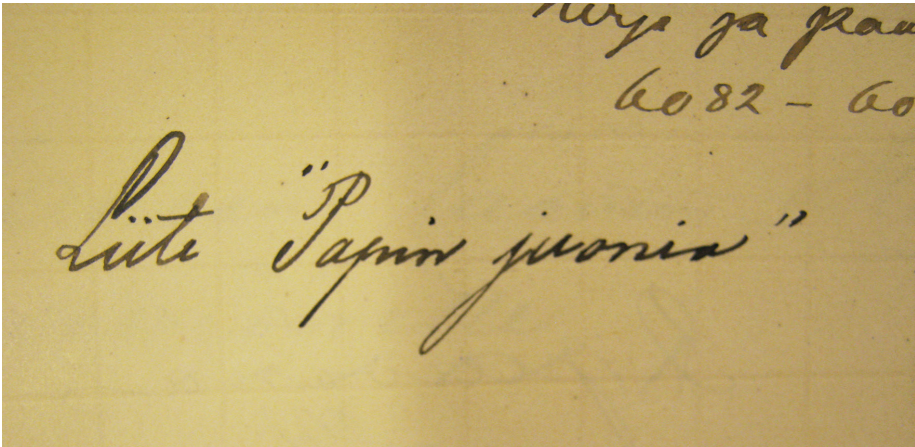 ja
6082 – 60
Liite "Papin juonia"